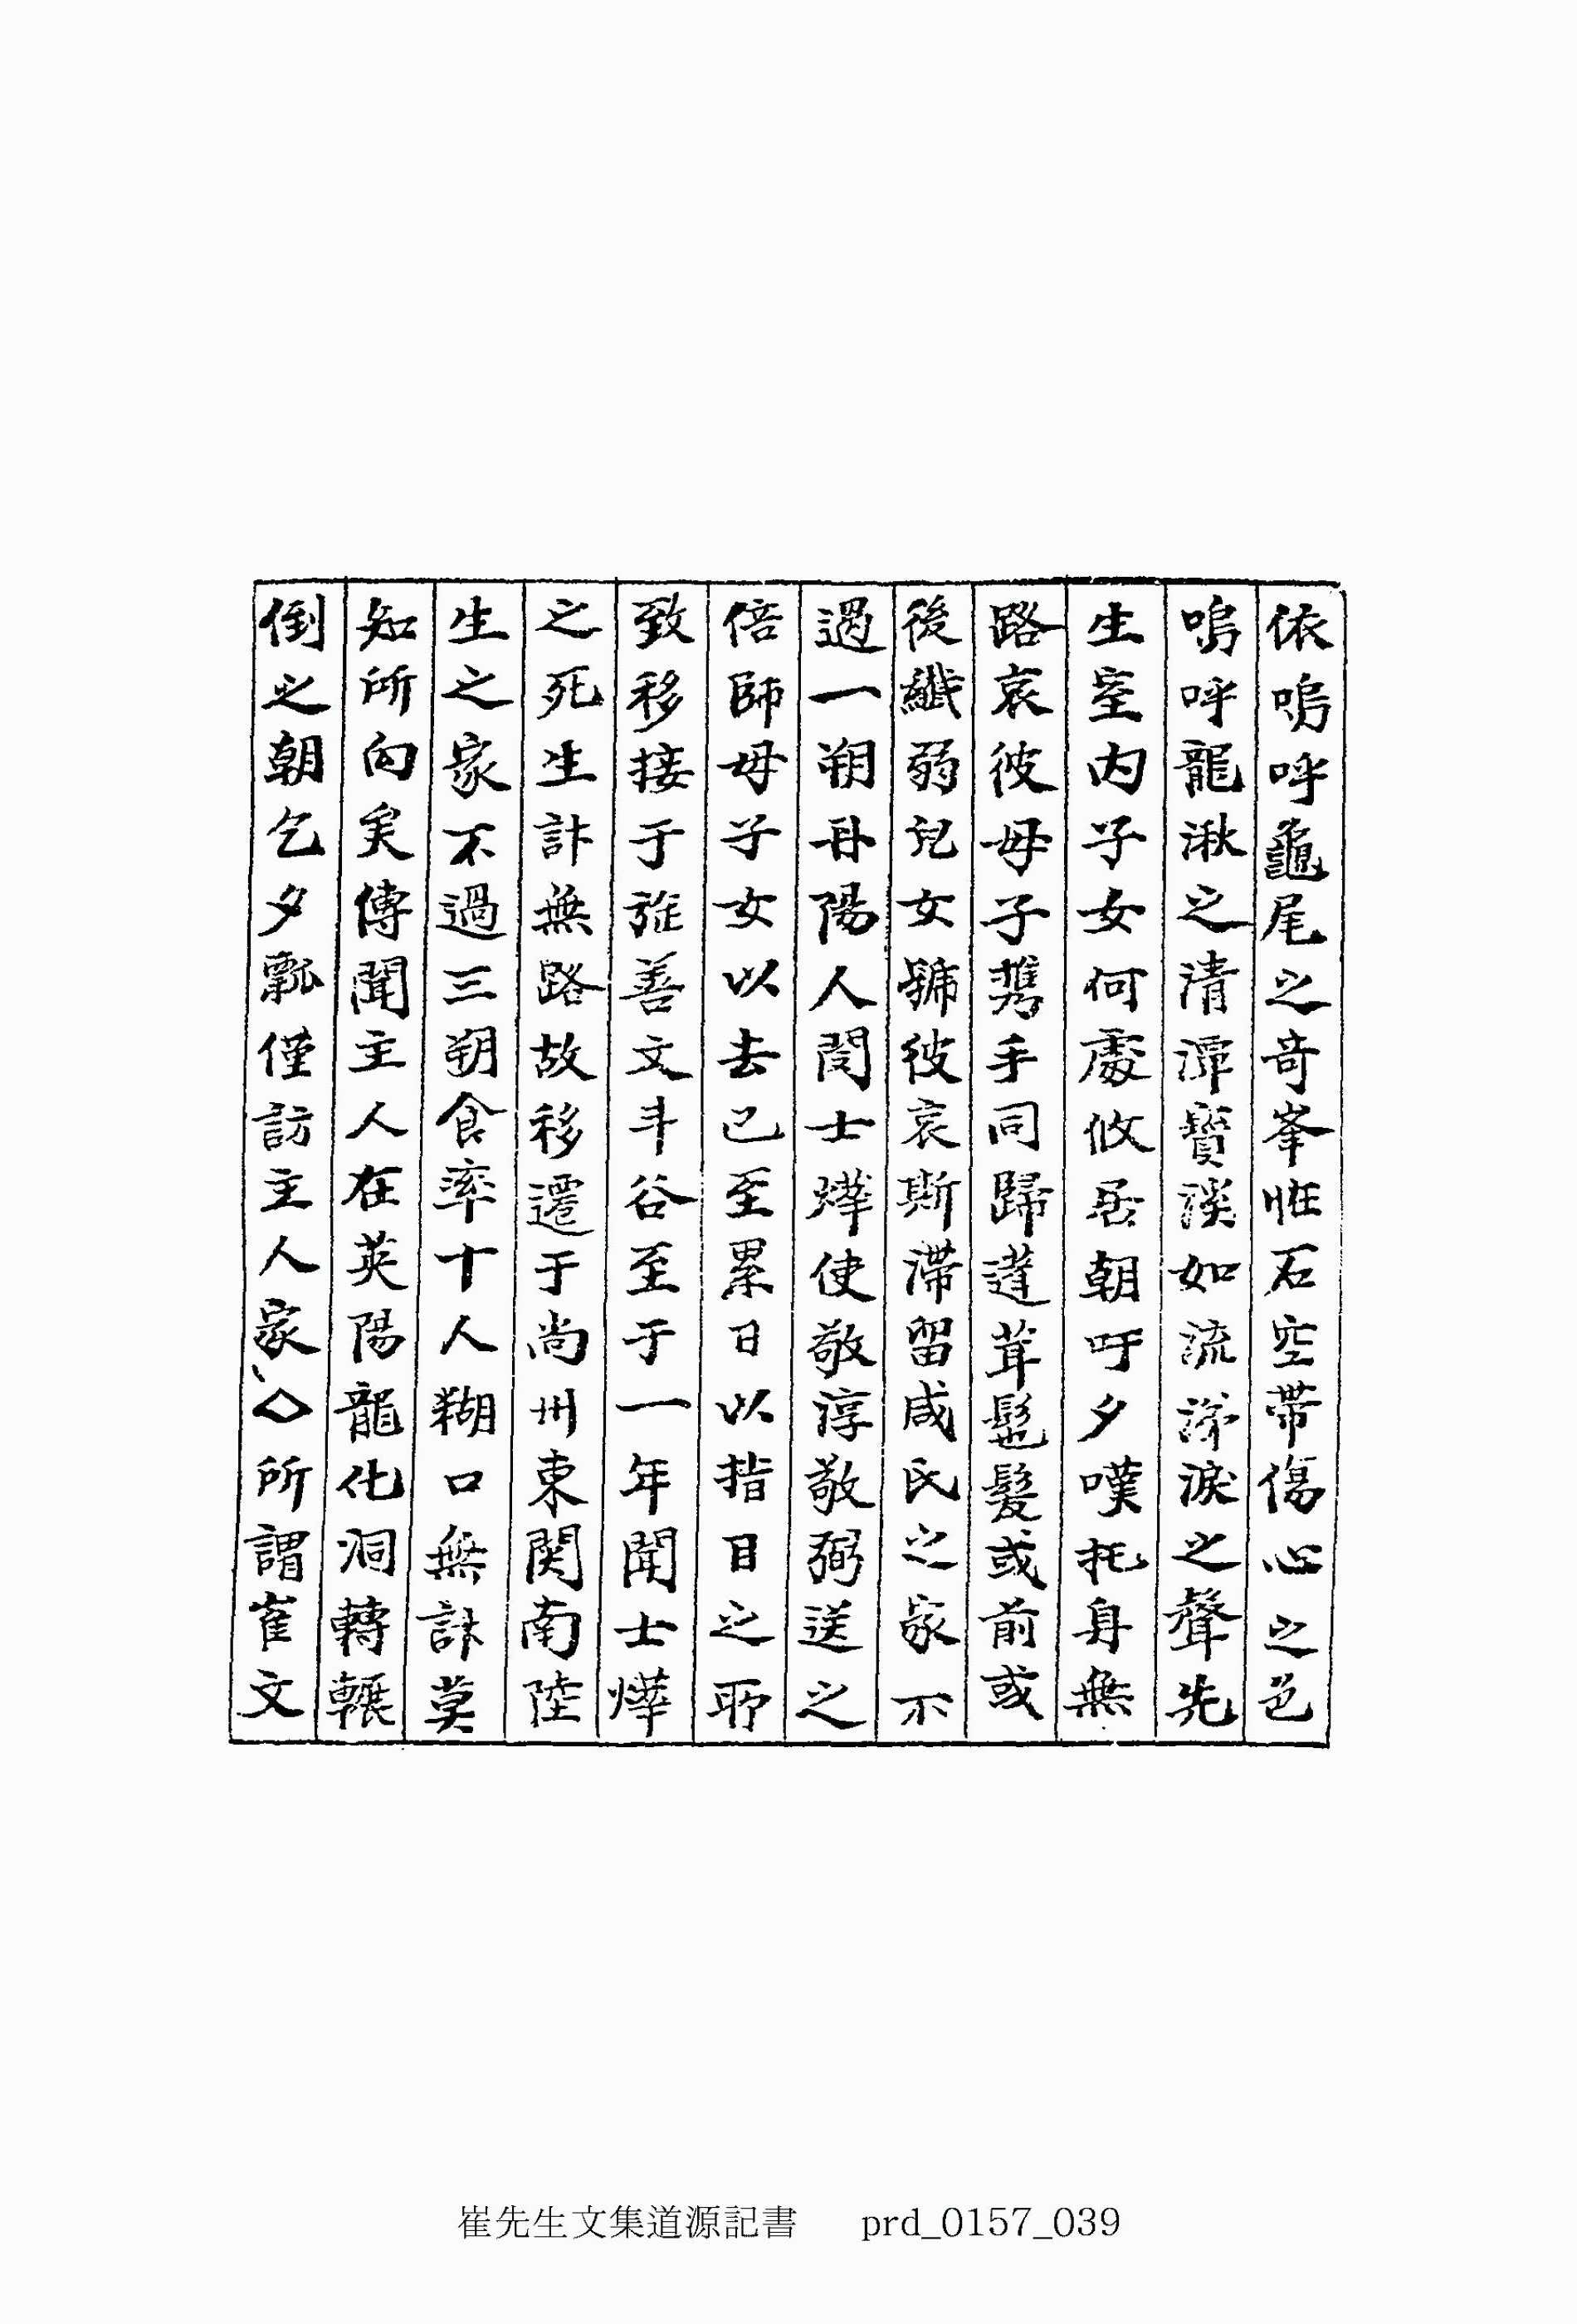 依嗚呼龜尾之奇峯恠石空帶傷心之色
嗚呼龍湫之清潭寶溪如流涕淚之聲先
生室內子女何處攸居朝吁夕嘆托身無
路哀彼母子携手同歸達茸髢髮或前或
後纖弱兒女號彼哀斯滯留咸氏之家不
過一朔丹陽人閔士燁使敬淳敬弼送之
倍師母子女以去已至累日以指目之耶
致移接于旌善文斗谷至于一年聞士燁
之死生計無路故移遷于尙州東関南陸
生之家不過三朔食率十人糊口無計莫
知所向矣傳聞主人在英陽龍化洞轉輾
倒之朝乞夕瓢僅訪主人家◇所謂崔文
崔先生文集道源記書 prd_0157_039